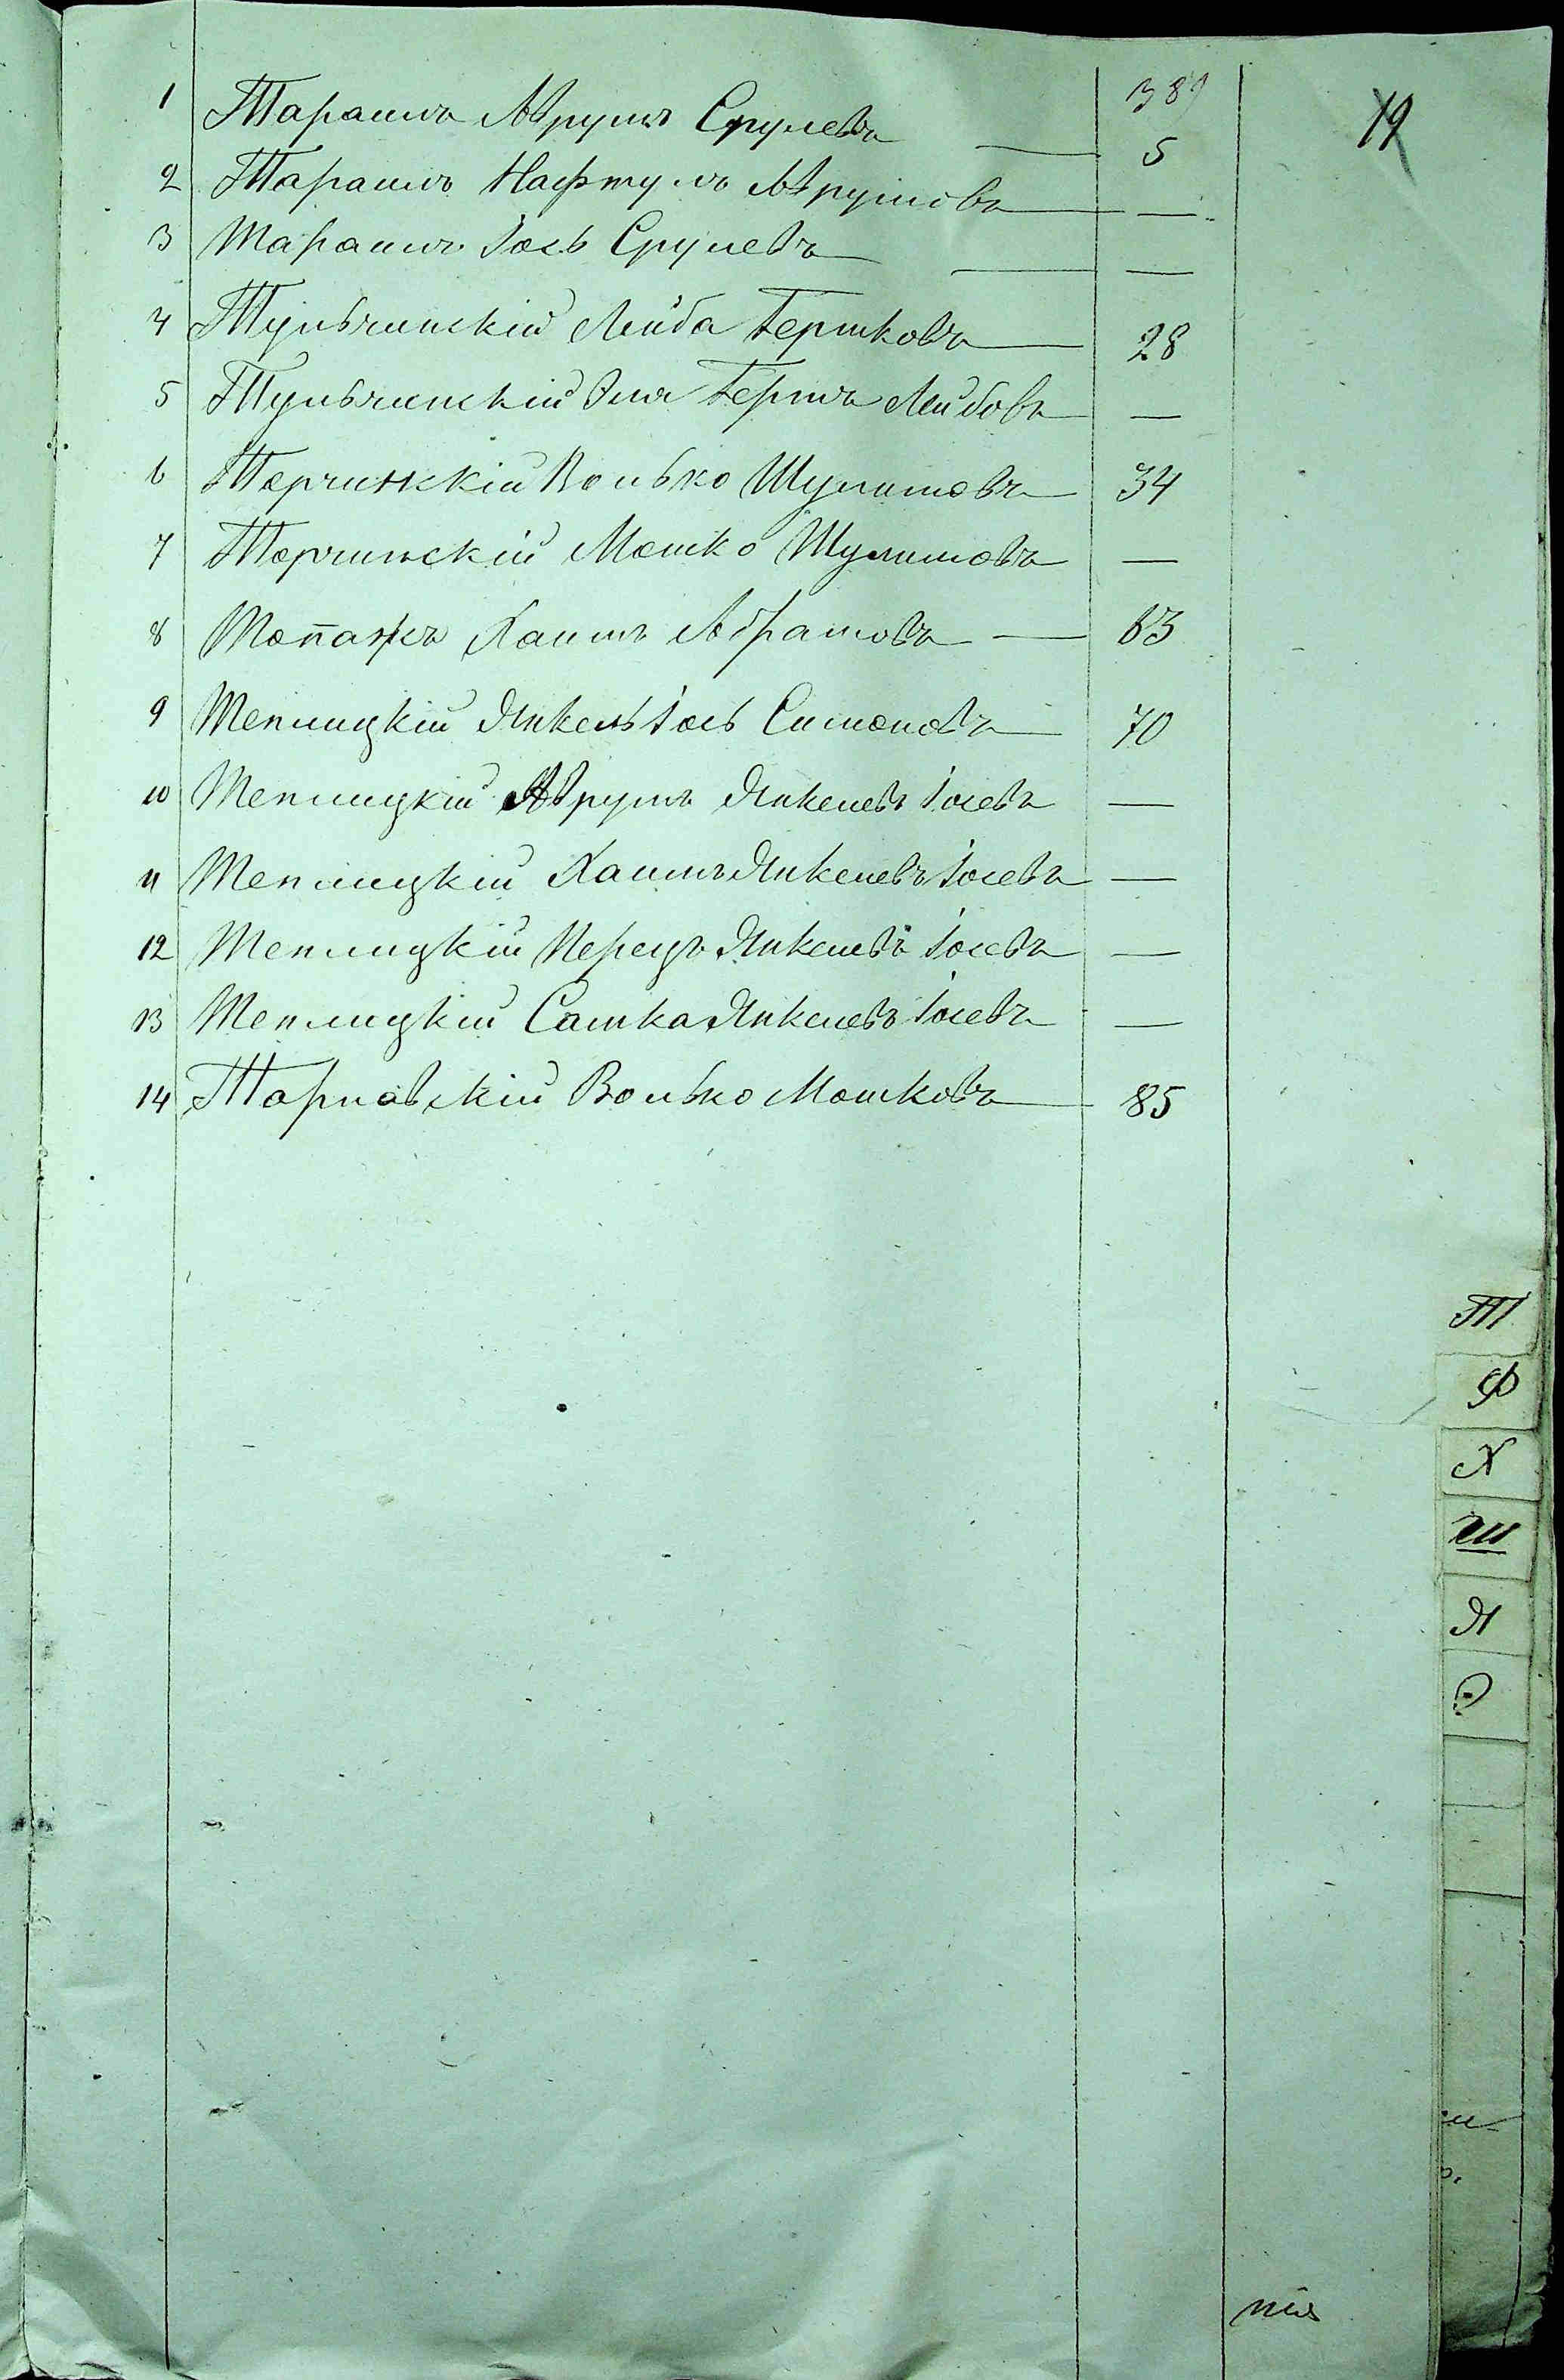 389
19
1 Тарашъ Аврумъ Срулевъ — 5
2 Тарашъ Нафтулъ Аврумовъ — —
3 Тарашъ Іось Срулевъ — —
4 Тульчинскій Лейба Гершковъ — 28
5 Тульчинскій Эля Гершъ Лейбовъ —
6 Торчинскій Волько Шулимовъ — 34
7 Торчинскій Мошко Шулимовъ —
8 Топажъ Хаимъ Абрамовъ — 63
9 Теплицкій Янкель Іось Симоновъ — 70
10 Теплицкій Аврумъ Янкелевъ Іосевъ —
11 Теплицкій Хаимъ Янкелевъ Іосевъ —
12 Теплицкій Перецъ Янкелевъ Іосевъ —
13 Теплицкій Сашка Янкелевъ Іосевъ —
14 Тарновскій Волько Мошковъ — 85
Т
Ф
Х
Ш
Я
Э